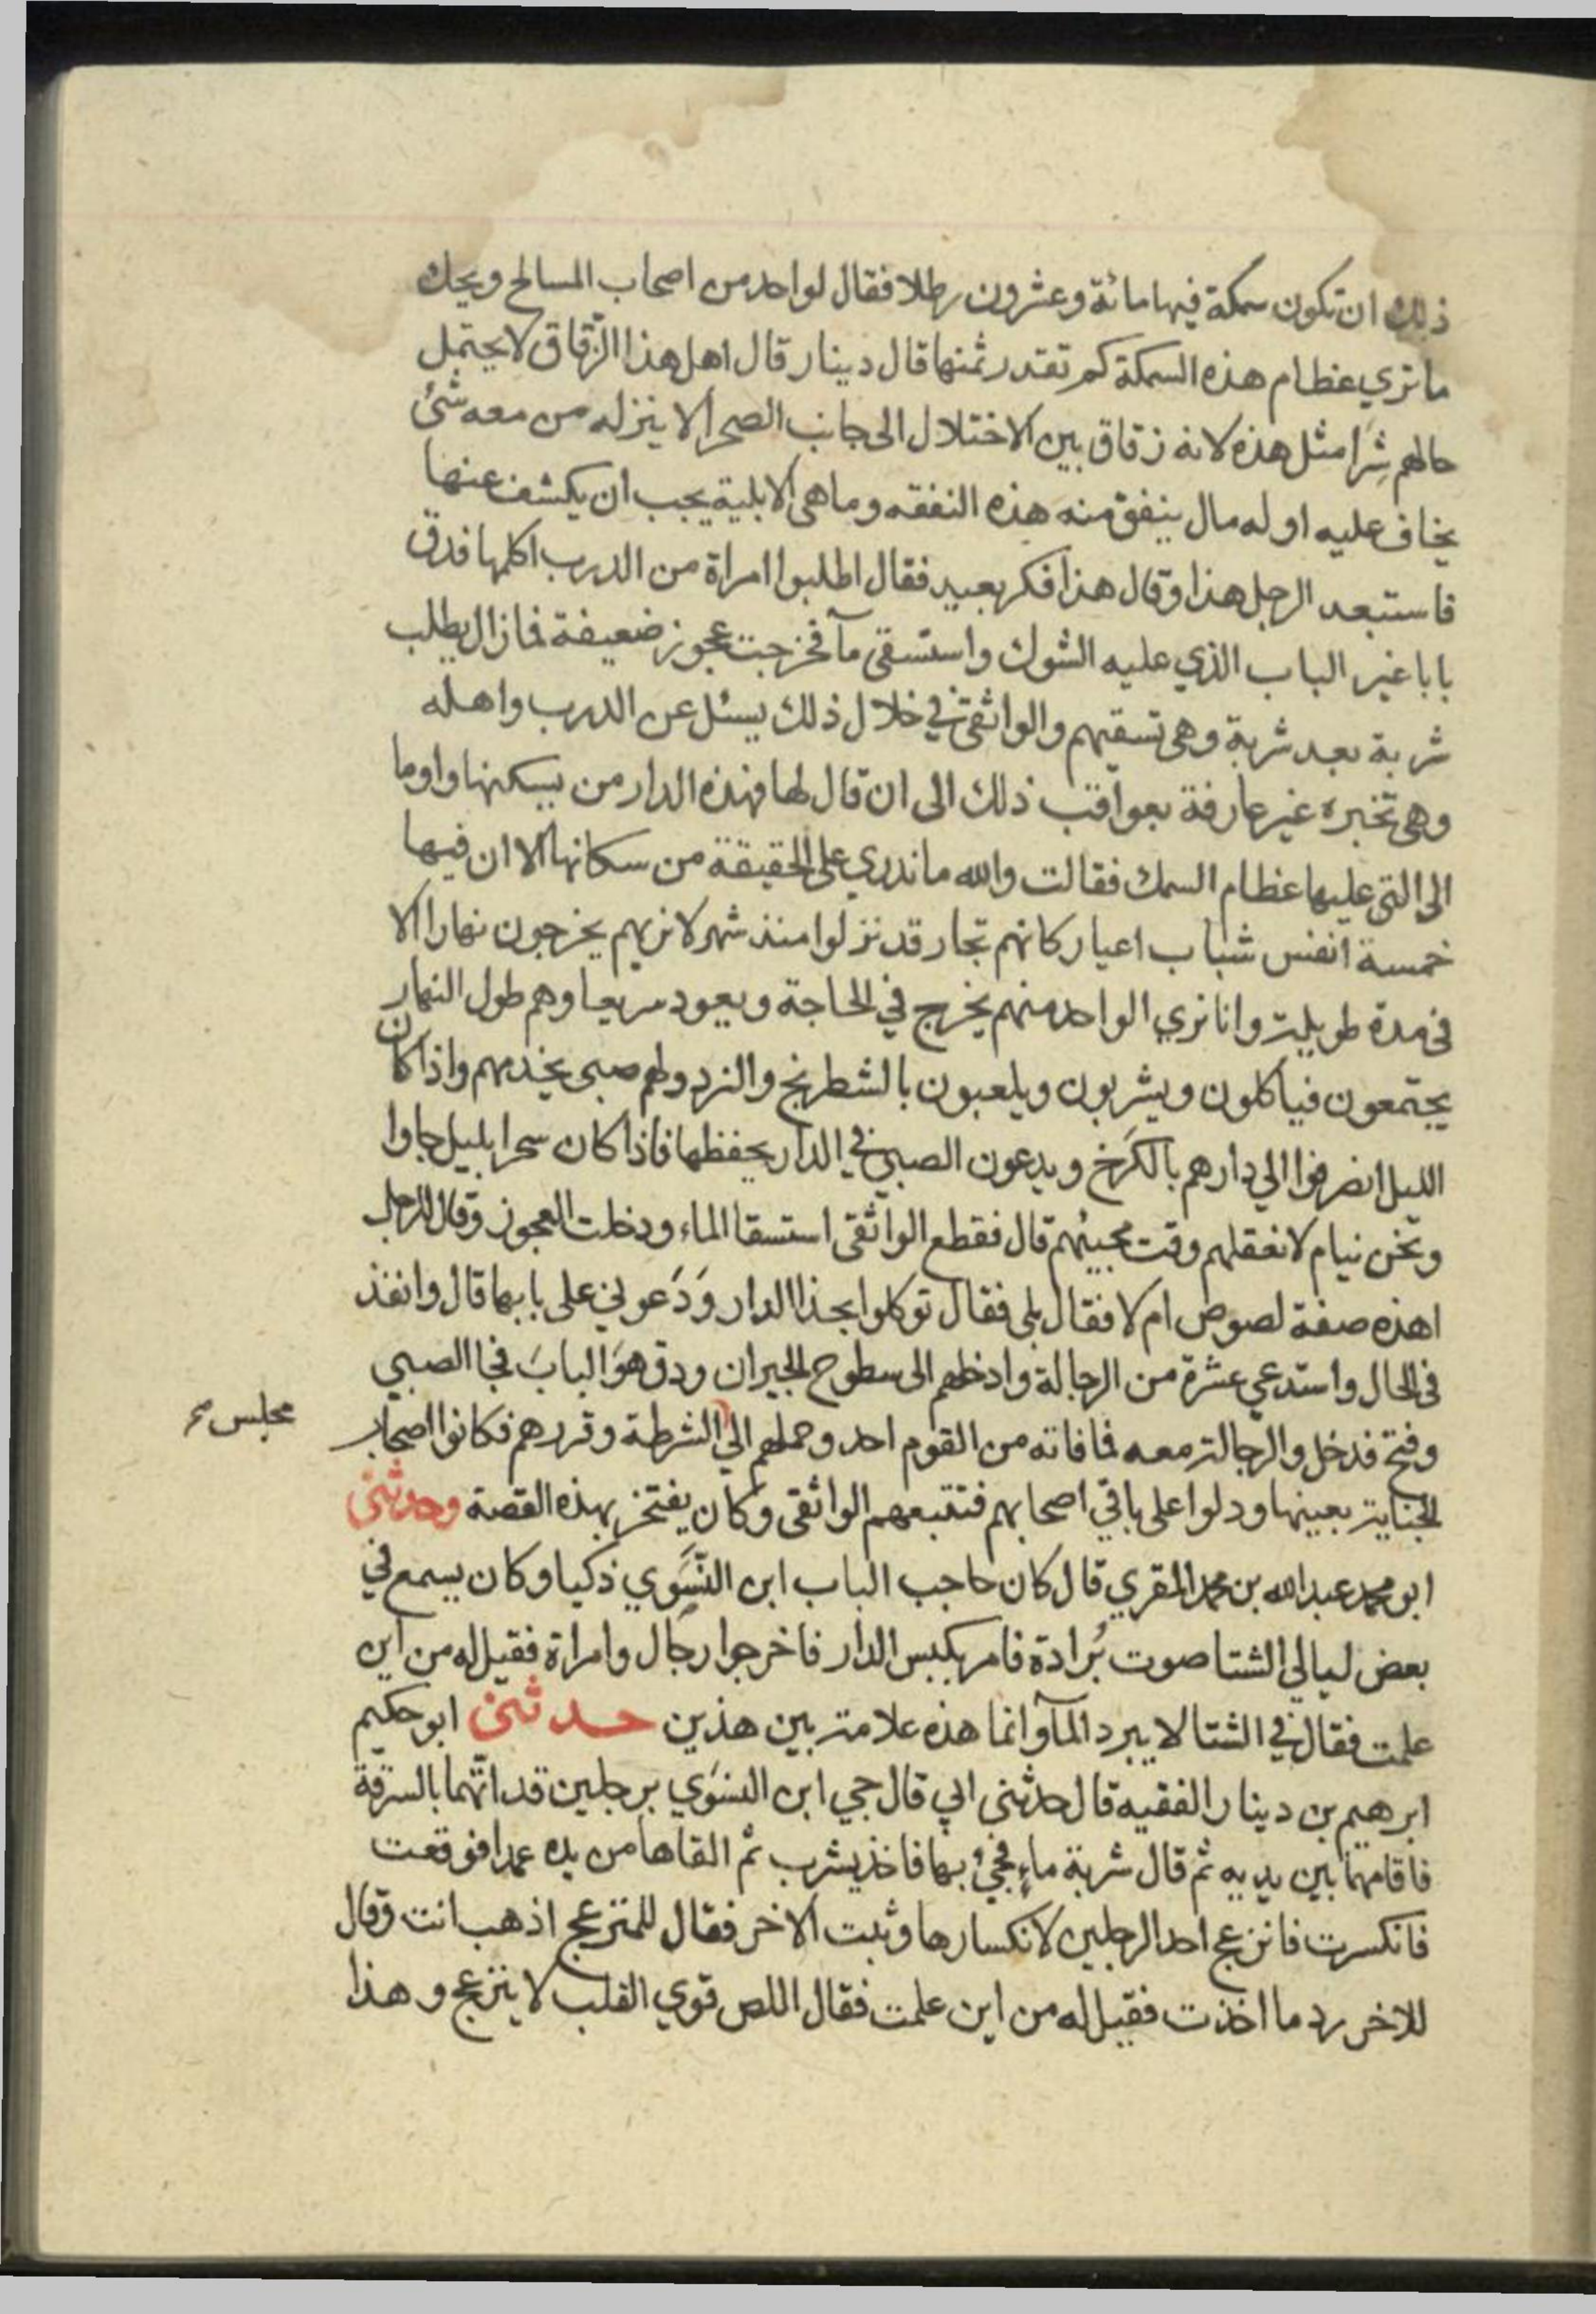 ذلك ان تكون سمكة فيها مائة وعشرون رطلا فقال لواحد من اصحاب المسالح ويحك
ما تري عظام هذه السمكة كم تقدر ثمنها قال دينار قال اهل هذا الزقاق لا يحتمل
حالهم شرا مثل هذه لانه زقاق بين الاختلال الى جانب الصحرا لا ينزله من معه شئ
يخاف عليه او له مال ينفق منه هذه النفقه وما هي الا بلية يجب ان يكشف عنها
فاستبعد الرجل هذا وقال هذا فكر بعيد فقال اطلبوا امراة من الدرب اكلمها فدق
بابا غير الباب الذي عليه الشوك واستسقى مآ فخرجت عجوز ضعيفة فما زال يطلب
شربة بعد شربة وهي تسقيهم والواثقي في خلال ذلك يسئل عن الدرب واهله
وهي تخبره غير عارفة بعواقب ذلك الى ان قال لها فهذه الدار من يسكنها واوما
الى التي عليها عظام السمك فقالت والله ما ندري على الحقيقة من سكانها الا ان فيها
خمسة انفس شباب اعيار كانهم تجار قد نزلوا منذ شهر لا نريهم يخرجون نهارا الا
في مدة طويلة وانا نري الواحد منهم يخرج في الحاجة ويعود سريعا وهم طول النهار
يجتمعون فياكلون ويشربون ويلعبون بالشطرنج والنرد ولهم صبي يخدمهم واذا كان
الليل انصرفوا الي دارهم بالكرخ ويدعون الصبي في الدار يحفظها فاذا كان سحرا بليل جاوا
ونحن نيام لا نعقلهم وقت مجيئهم قال فقطع الواثقي استسقا الماء ودخلت العجوز وقال للرجل
اهذه صفة لصوص ام لا فقال بلى فقال توكلوا بحذا الدار وَدَعوني على بابها قال وانفذ
في الحال واستدعي عشرة من الرجالة وادخلهم الى سطوح الجيران ودق هوَ البابَ فجا الصبي
وفتح فدخل والرجالة معه فما فاته من القوم احد وحملهم الي الشرطة وقررهم فكانوا اصحاب
مجلس
الجناية بعينها ودلوا على باقي اصحابهم فتتبعهم الواثقى وكان يفتخر بهذه القصة وحدثني
ابو محمد عبد الله بن محمد المقري قال كان حاجب الباب ابن النَّسَوي ذكيا وكان يسمع في
بعض ليالي الشتا صوت بُرادة فامر بكبس الدار فاخرجوا رجال وامراة فقيل له من اين
علمت فقال في الشتا لا يبرد المآ وانما هذه علامة بين هذين حدثنى ابو حكيم
ابرهيم بن دينار الفقيه قال حدثني ابي قال جي ابن النسَوي برجلين قد اتُّهما بالسرقة
فاقامهما بين يديه ثم قال شربة ماءٍ فجئ بها فاخذ يشرب ثم القاها من يده عمدا فوقعت
فانكسرت فانزعج احد الرجلين لانكسارها وثبت الاخر فقال للمنزعج اذهب انت وقال
للاخر رد ما اخذت فقيل له من اين علمت فقال اللص قوي القلب لا ينزعج وهذا